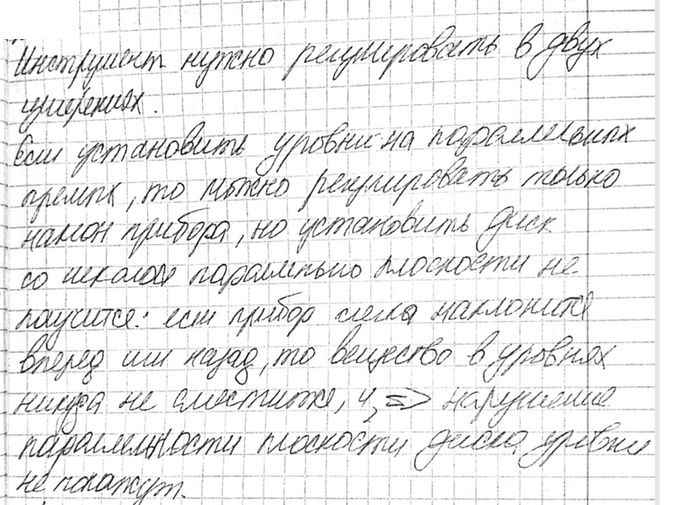 Инструмент нужно регулировать в двух
измерениях.
Если установить уровни на параллельных
прямых, то можно регулировать только
наклон прибора, но установить диск
со шкалой параллельно плоскости не
получится: если прибор слегка наклонится
вперед или назад, то вещество в уровнях
никуда не сместится, и, => нарушение
параллельности плоскости диска уровни
не покажут.